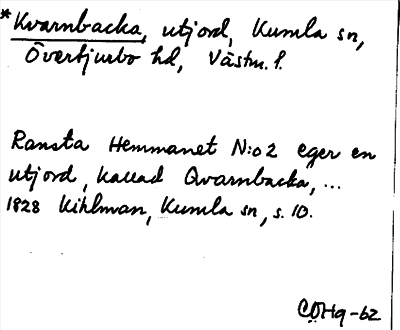 *Kvarnbacka, utjord, Kumla sn,
Övertjurbo hd, Västm. l.
Ransta Hemmanet N:o 2 eger en
utjord, kallad Qvarnbacka, ...
1828 Kihlman, Kumla sn, s. 10.
CÖHg-62